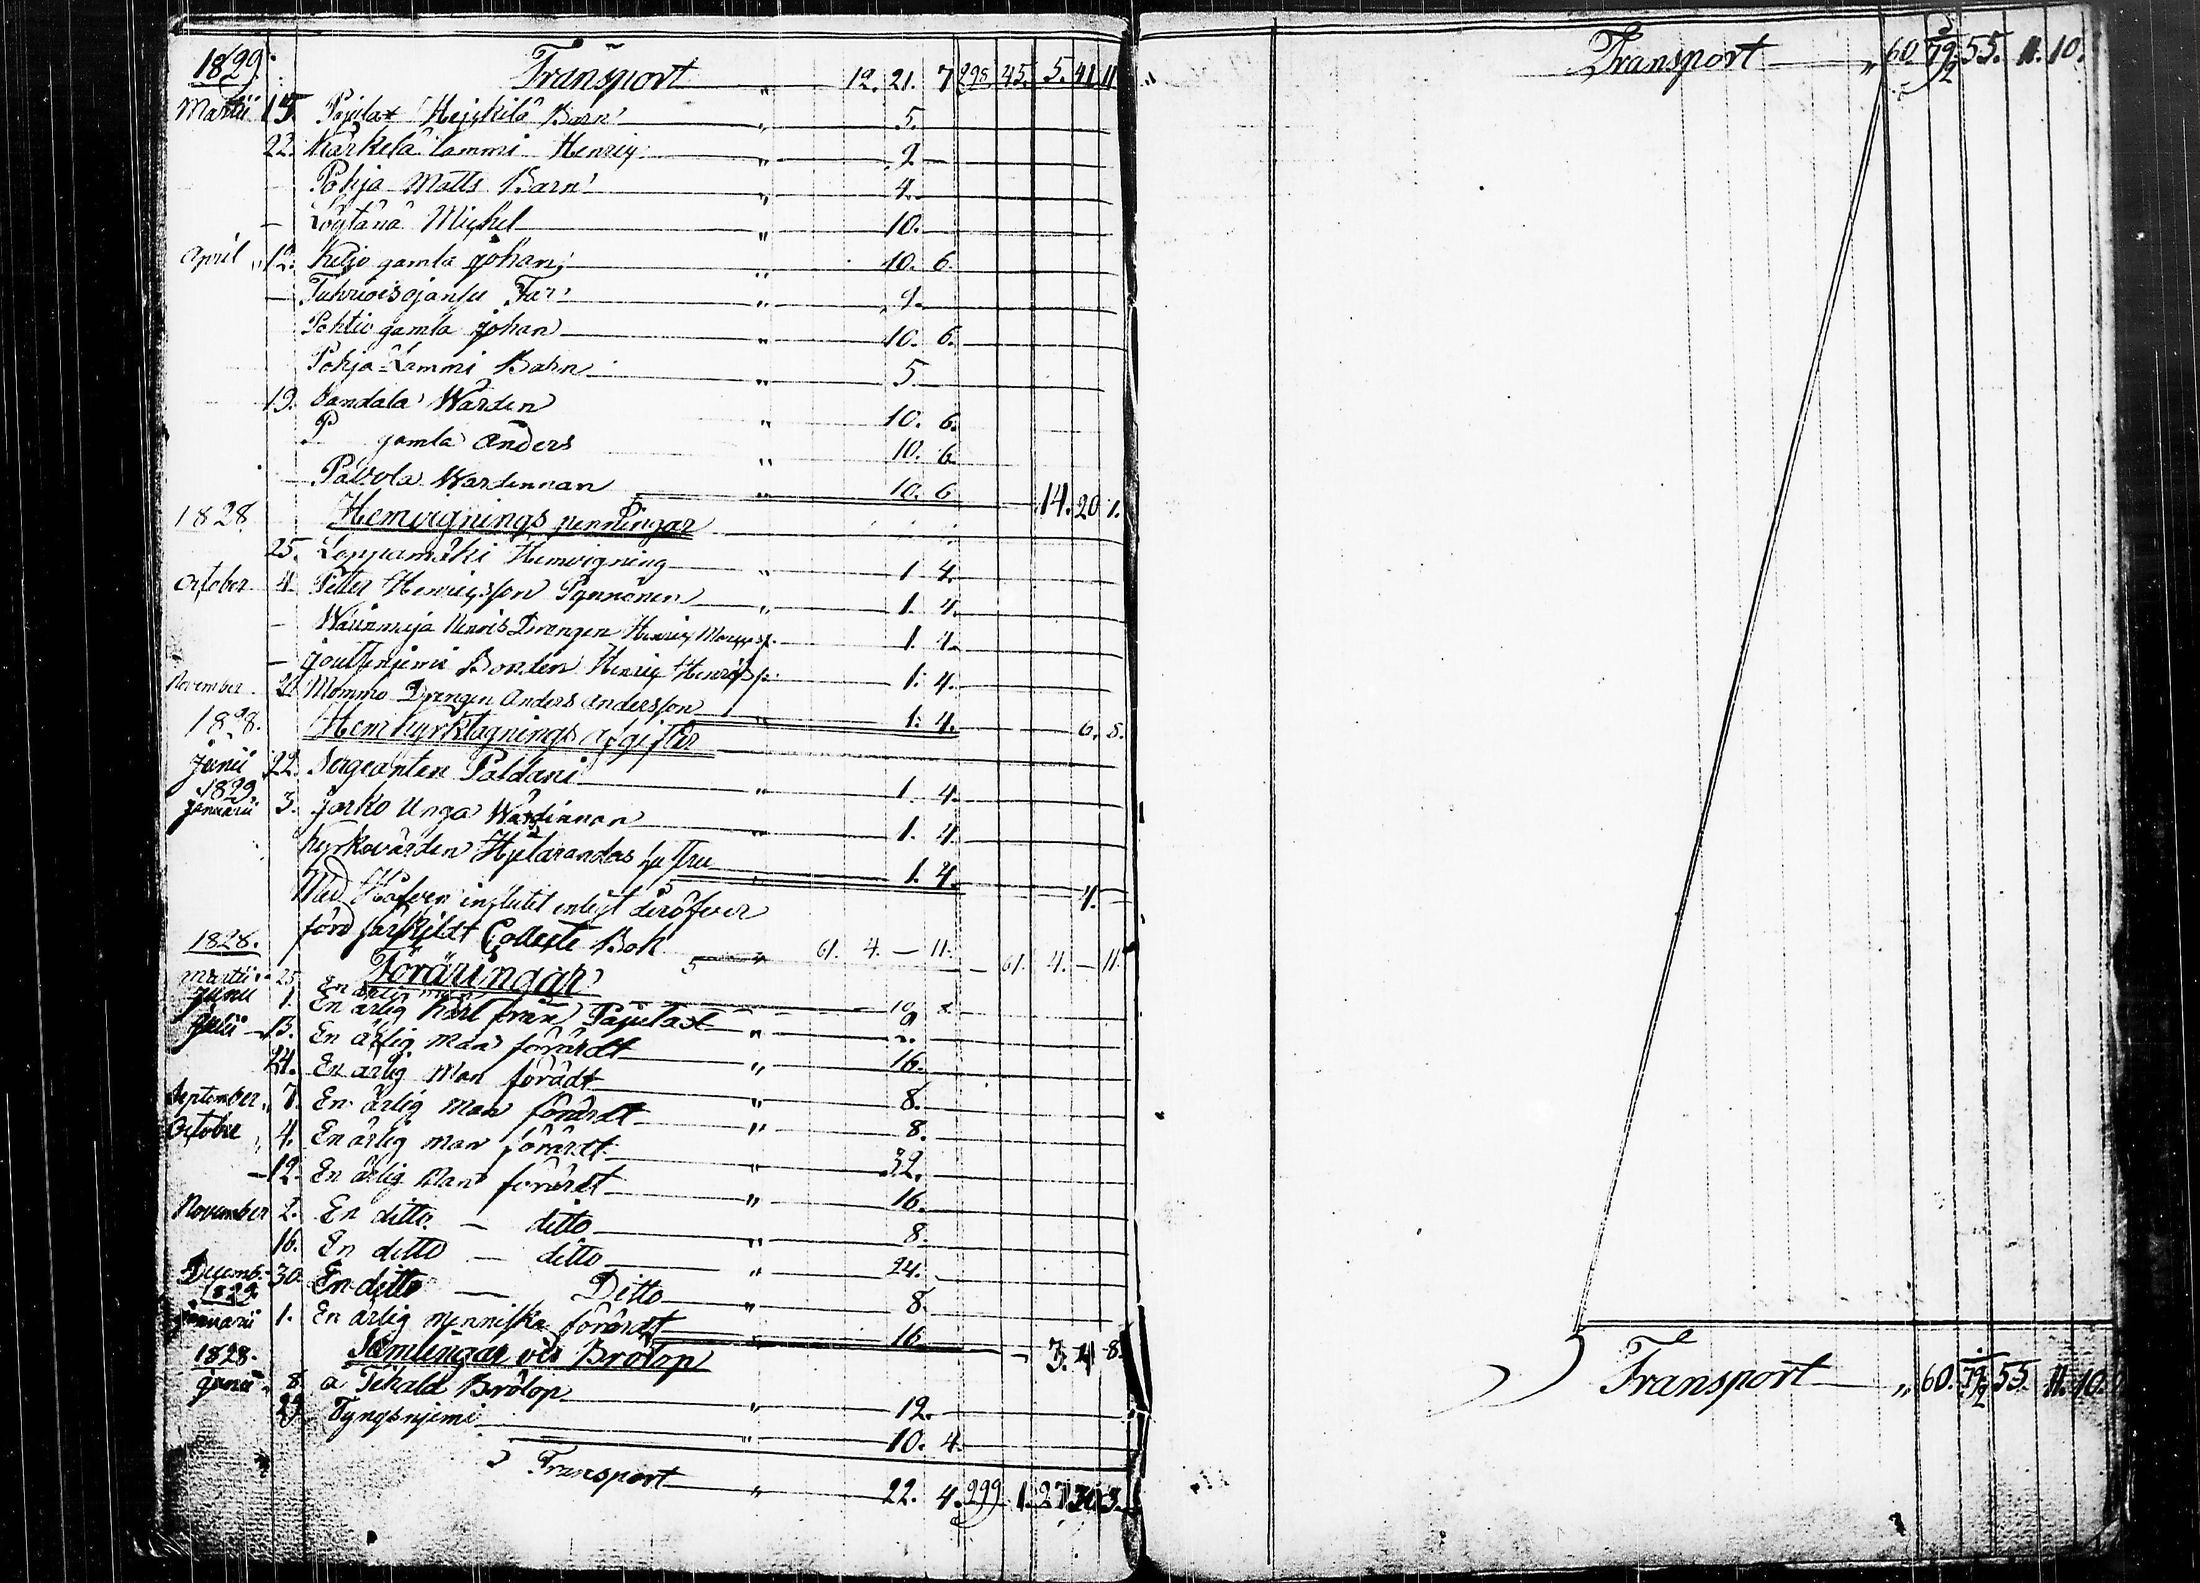 1829. Transport " 12. 21. 7 298 45. 5. 41 11
Martii 15. Pajulax Heickilä Barn " 5.
22. Markela Lammi Henric " 2
Pohja Matts Barn " 4.
- Löytänä Michel " 10.
April 12. Keljo gamla Johan " 10. 6.
- Far "
Pohtio gamla Johan " 10. 6.
Pohja Lammi Barn " 5
19. Sandala Wärden " 10. 6.
P gamla Anders " 10. 6
- Pavola Wärdinnan " 10. 6 14. 20 1.
1828 Hemvignings penningar
25. Loppamäki Hemvigning " 1 4.
October 4. Petter Henricsson " 1. 4.
- Drengen Henric 1. 4.
- Bonden Henric 1. 4.
November Mommo Drengen Anders Andersson " 1. 4. 6. 8.
1828. Hemkyrktagnings afgifter
Junii 22. Sergeanten Paldani " 1. 4.
1829
Januarii 3. Jarko Unga Wärdinnan " 1. 4.
Kyrkovärden hustru " 1. 4. 4.
Med Håfven influtit enligt deröfver
förd särskildt Collecte Bok " 61. 4. — 11. 61. 4. — 11
1828. Föräringar
Martii 25. En ärlig man 10
Junii 1. En ärlig karl från Pajulax "
Julii 13. En ärlig man förärdt " 16.
24. En ärlig Man förädt " 8.
September 7. En ärlig man förärdt " 8.
Octobre 4. En ärlig man förärdt " 32.
- 12. En ärlig Man förärdt " 16.
November 2. En ditto — ditto " 8.
16. En ditto — ditto " 24.
Decemb. 30. En ditto — Ditto " 8.
1829
Januarii 1. En ärlig menniska förärdt " 16. 3. 4 8.
1828. Samlingar vid Brölop
Junii 8. a Tikald Brölop " 12.
29. " 10. 4.
Transport " 22. 4. 299 1. 27 30 3.
Transport " 60 79/2 55. 11. 10.
Transport " 60. 79/2 55. 11. 10.